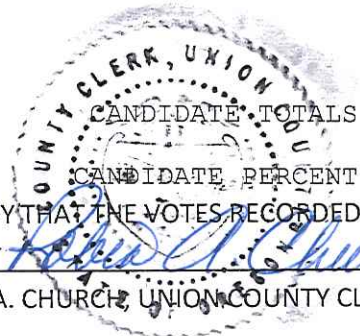 COUNTY CLERK, UNION COU
STATE OF OREGON
CANDIDATE TOTALS
CANDIDATE PERCENT
Y THAT THE VOTES RECORDED
A. CHURCH, UNION COUNTY CL